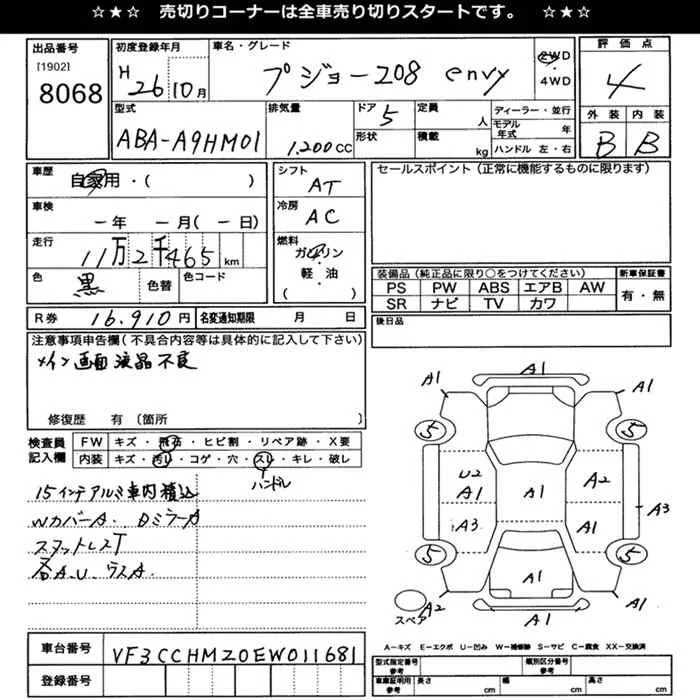 ☆★☆ 売切りコーナーは全車売り切りスタートです。 ☆★☆
出品番号
[1902]
8068
初度登録年月
H 26 10月
車名・グレード
プジョー208 envy
2WD
・
4WD
評価点
4
型式
ABA-A9HM01
排気量
1.200cc
ドア 5
形状
定員 人
積載 kg
ディーラー・並行
モデル年式 年
ハンドル 左・右
外装 内装
B B
車歴
自家用・( )
車検
ー年 ー月(ー日)
走行
11万2千465km
色
黒
色替
色コード
シフト
AT
冷房
AC
燃料
ガソリン
・
軽・油
( )
セールスポイント(正常に機能するものに限ります)
装備品(純正品に限り○をつけてください)
PS PW ABS エアB AW
SR ナビ TV カワ
新車保証書
有・無
R券 16.910円
名変通知期限 月 日
後日品
注意事項申告欄(不具合内容等は具体的に記入して下さい)
メイン画面液晶不良
修復歴 有 〔箇所
検査員
記入欄
FW キズ・飛石・ヒビ割・リペア跡・X要
内装 キズ・汚レ・コゲ・穴・スレ・キレ・破レ
ハンドル
15インチアルミ車内積込
WカバーA. DミラーA
スタットレスT
各A.U. ウスA.
A1 A1 A1
5 5
U2
A1 A1 A2
A3 A1 A3
5 5
A1
スペア
A2 A1 A1
A－キズ E－エクボ U－凹み W－補修跡 S－サビ C－腐食 XX－交換済
車台番号
VF3CCHMZ0EW011681
登録番号
型式指定番号
参考
類別区分番号
参考
車庫証明用
参考
長さ cm 幅 cm 高さ cm